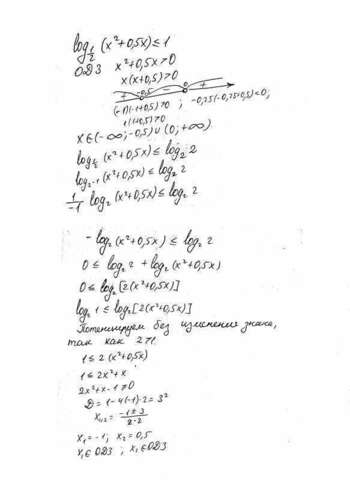 log_{1/2} (x²+0,5x) ≤ 1
ОДЗ x²+0,5x>0
x(x+0,5)>0
+ -0,5 - 0 +
(-1)(-1+0,5)>0 ; -0,25(-0,25+0,5)<0;
1(1+0,5)>0
x∈(-∞;-0,5)∪(0;+∞)
log_{1/2} (x²+0,5x) ≤ log₂ 2
log_{2^{-1}} (x²+0,5x) ≤ log₂ 2
1/-1 log₂ (x²+0,5x) ≤ log₂ 2
-log₂ (x²+0,5x) ≤ log₂ 2
0 ≤ log₂ 2 + log₂ (x²+0,5x)
0 ≤ log₂ [2(x²+0,5x)]
log₂ 1 ≤ log₂ [2(x²+0,5x)]
Потенцируем без изменения знака,
так как 2>1.
1 ≤ 2(x²+0,5x)
1 ≤ 2x²+x
2x²+x-1≥0
D = 1-4(-1)·2 = 3²
x₁,₂ = (-1±3)/(2·2)
x₁=-1; x₂=0,5
x₁∈ОДЗ ; x₂∈ОДЗ